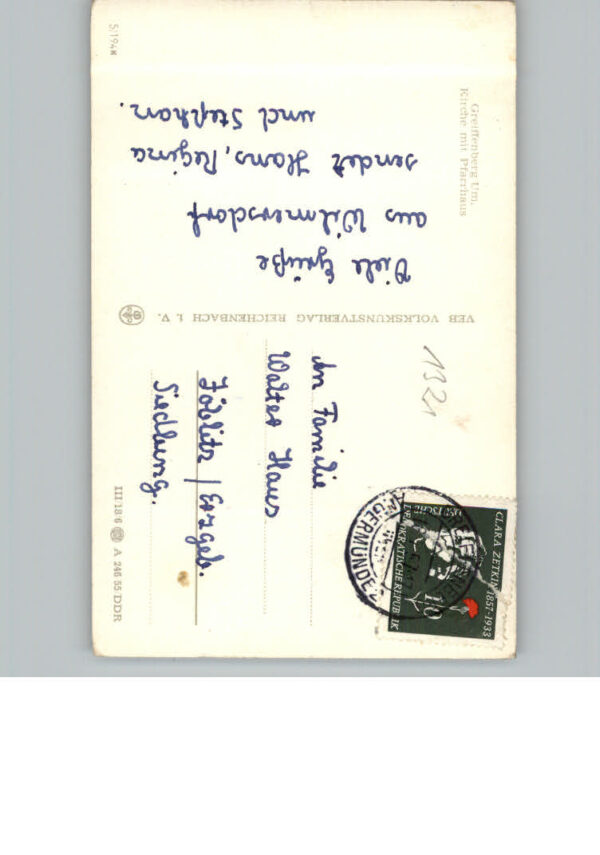 Greiffenberg Um.
Kirche mit Pfarrhaus
Viele Grüße
aus Wilmersdorf
sendet Hans, Regina
und Stephan.
S/194 K
VEB VOLKSKUNSTVERLAG REICHENBACH I. V.
1321
An Familie
Walter Haus
Zöblitz / Erzgeb.
Siedlung.
III 18 6 A 246 55 DDR
CLARA ZETKIN 1857-1933
10
DEUTSCHE
DEMOKRATISCHE REPUBLIK
ANGERMÜNDE